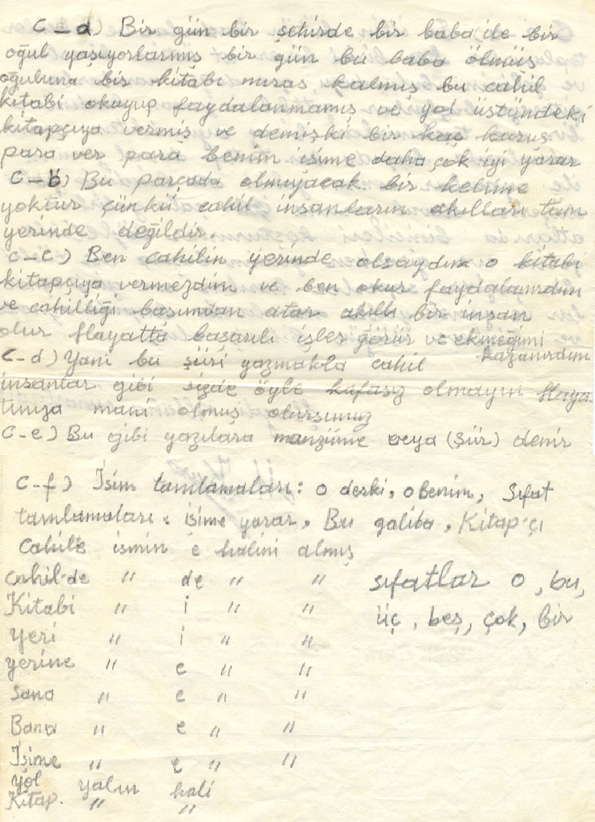 C-a) Bir gün bir şehirde bir baba ile bir
oğul yaşıyorlarmış bir gün bu baba ölmüş
oğuluna bir kitabı miras kalmış bu cahil
kitabı okuyup faydalanmamış ve yol üstündeki
kitapçıya vermiş ve demişki bir kaç kuruş
para ver para benim işime daha çok iyi yarar
C-b) Bu parçada olmuyacak bir kelime
yoktur çünkü cahil insanların akılları tam
yerinde değildir.
C-c) Ben cahilin yerinde olsaydım o kitabı
kitapçıya vermezdim ve ben okur faydalanırdım
ve cahilliği başımdan atar akıllı bir insan
olur Hayatta başarılı işler görür ve ekmeğimi
kazanırdım
C-d) Yani bu şiiri yazmakla cahil
insanlar gibi sizde öyle kafasız olmayın Haya-
tınıza mani olmuş olursunuz
C-e) Bu gibi yazılara manzüme veya (Şiir) denir
C-f) İsim tamlamaları: o derki, o Benim, Sıfat
tamlamaları: işime yarar, Bu galiba, Kitap-çı
Cahile ismin e halini almış
cahil-de " de " "
Kitabi " i " "
Yeri " i " "
yerine " e " "
Sana " e " "
Bana " e " "
İşime " e " "
Yol yalın hali
Kitap. " "
sıfatlar o, bu,
üç, beş, çok, bir